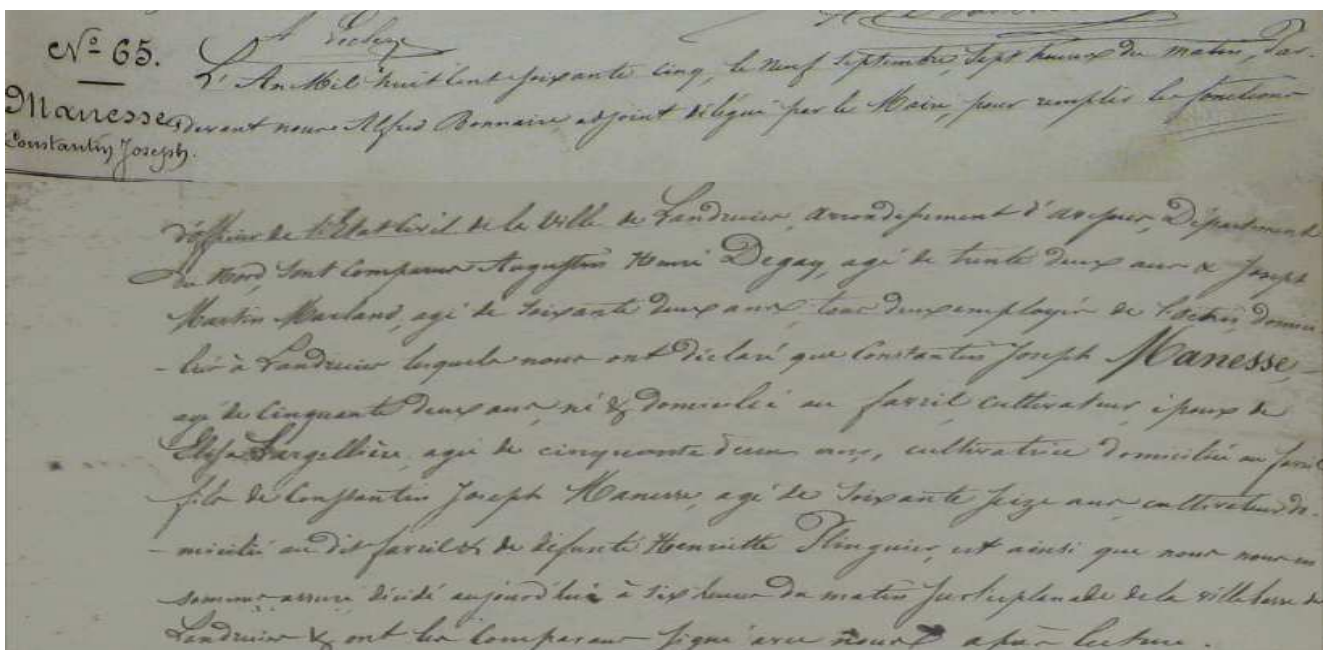 N° 65.
Manesse,
Constantin Joseph.
L'An Mil huit cent soixante cinq, le neuf Septembre, Sept heures du matin, Par-
devant nous Alfred Bonnaire adjoint délégué par le Maire, pour remplir les fonctions
d'officier de l'Etat Civil de la Ville de Landrecies, arrondissement d'avesnes, Département
du Nord, sont comparus Augustin Henri Degay, agé de trente deux ans & Joseph
Martin Marland, agé de soixante deux ans, tous deux employés de l'octroi domici-
-liés à Landrecies lesquels nous ont déclaré que Constantin Joseph Manesse,
agé de cinquante deux ans, né & domicilié au favril cultivateur, époux de
Elisa Largillière, agée de cinquante deux ans, cultivatrice domiciliée au favril
fils de Constantin Joseph Manesse, agé de soixante seize ans cultivateur do-
-micilié au dit favril & de défunte Henriette Plinguier, est ainsi que nous nous en
sommes assuré décédé aujourd'hui à six heures du matin sur l'esplanade de la ville basse de
Landrecies & ont les comparans signé avec nous après lecture.